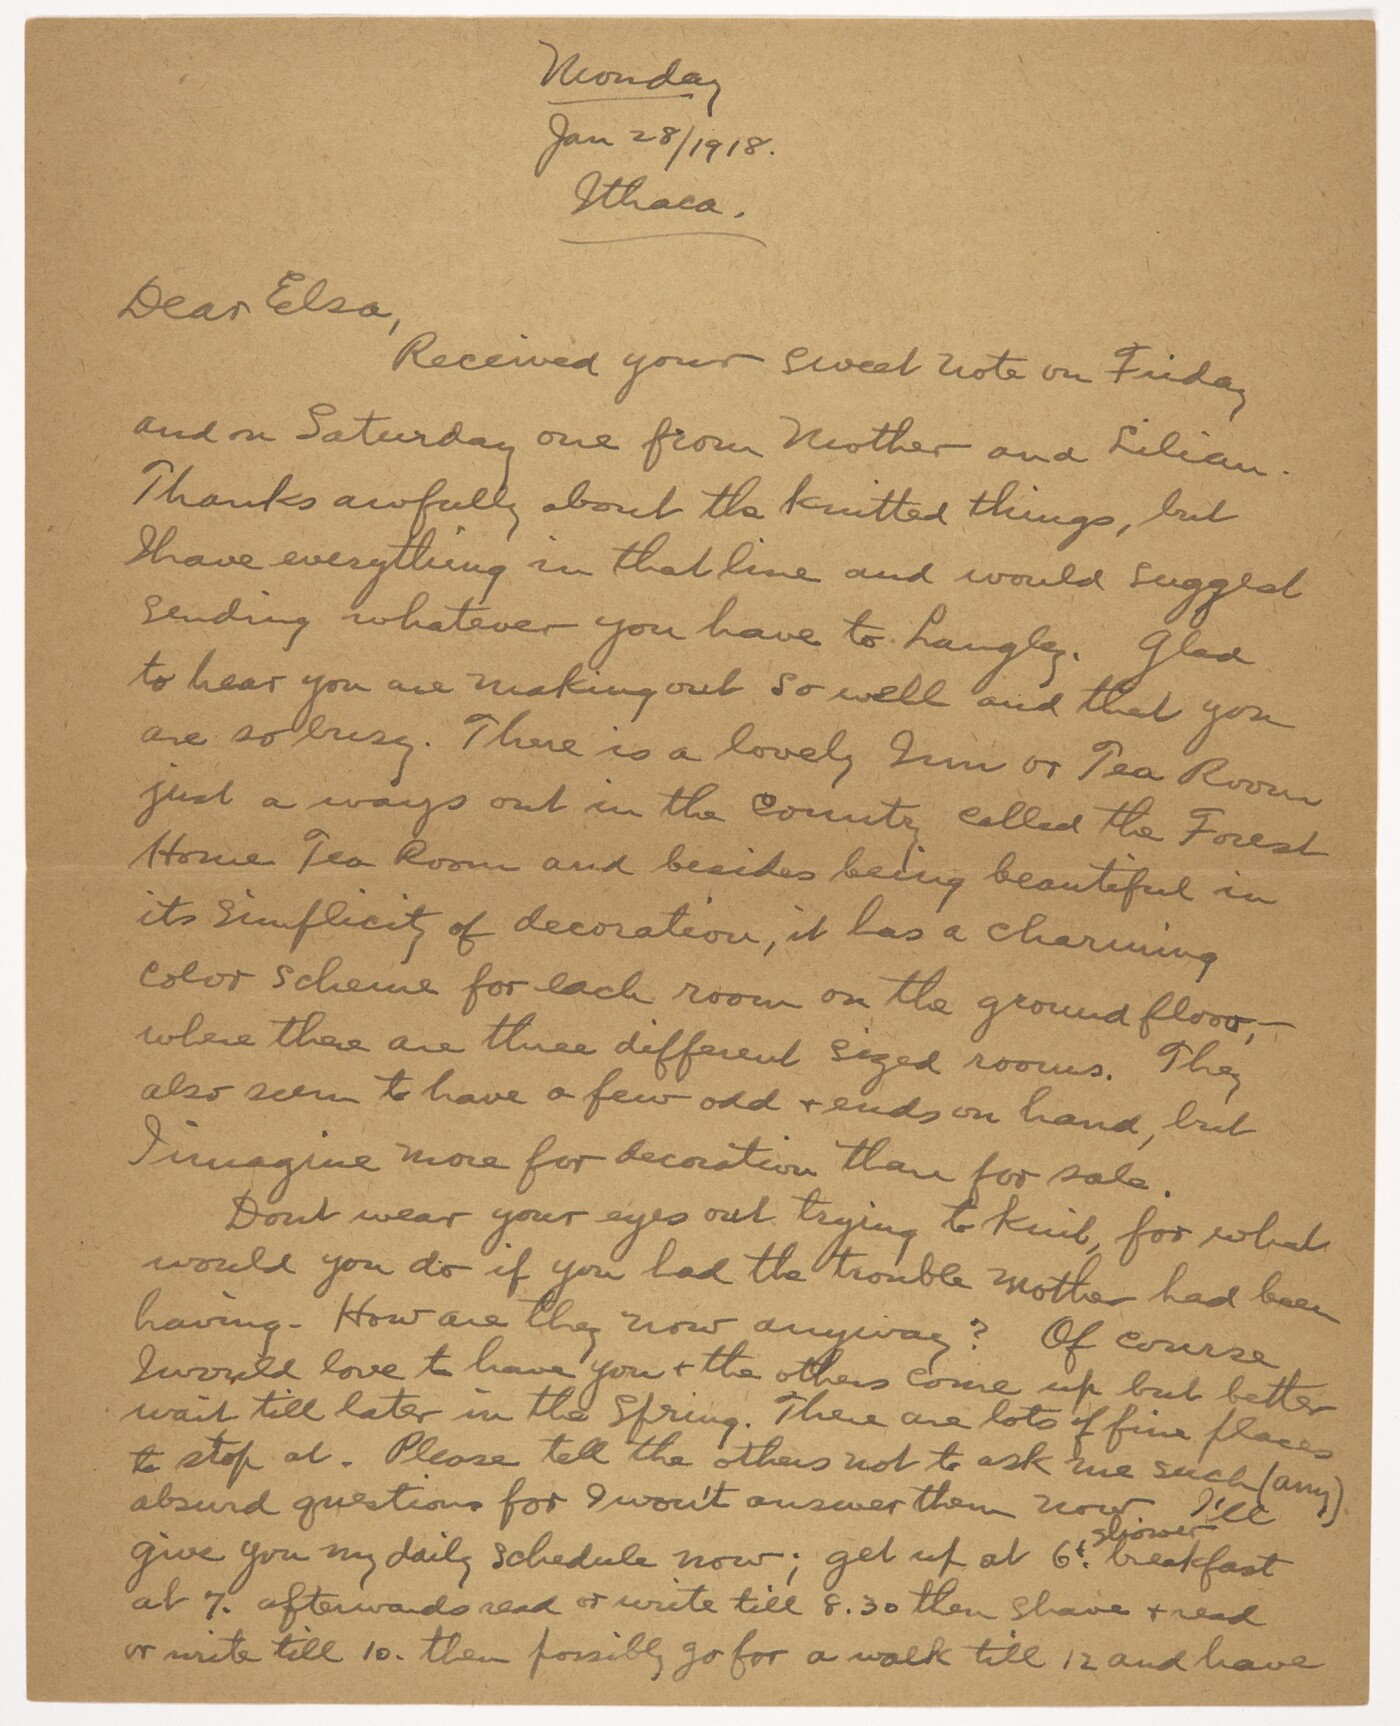 Monday
Jan 28/1918.
Ithaca.
Dear Elsa,
Received your sweet note on Friday
and on Saturday one from Mother and Lilian.
Thanks awfully about the knitted things, but
I have everything in that line and would suggest
sending whatever you have to Langley. Glad
to hear you are making out so well and that you
are so busy. There is a lovely Inn or Tea Room
just a ways out in the country called the Forest
Home Tea Room and besides being beautiful in
its simplicity of decoration, it has a charming
color scheme for each room on the ground floor,—
where there are three different sized rooms. They
also seem to have a few odd + ends on hand, but
I imagine more for decoration than for sale.
Dont wear your eyes out trying to knit, for what
would you do if you had the trouble Mother had been
having. How are they now anyway? Of course
I would love to have you + the others come up but better
wait till later in the Spring. There are lots of fine places
to stop at. Please tell the others not to ask me such (any)
absurd questions for I won't answer them now I'll
give you my daily schedule now; get up at 6 + shower. breakfast
at 7. afterwards read or write till 8.30 then shave + read
or write till 10. then possibly go for a walk till 12 and have